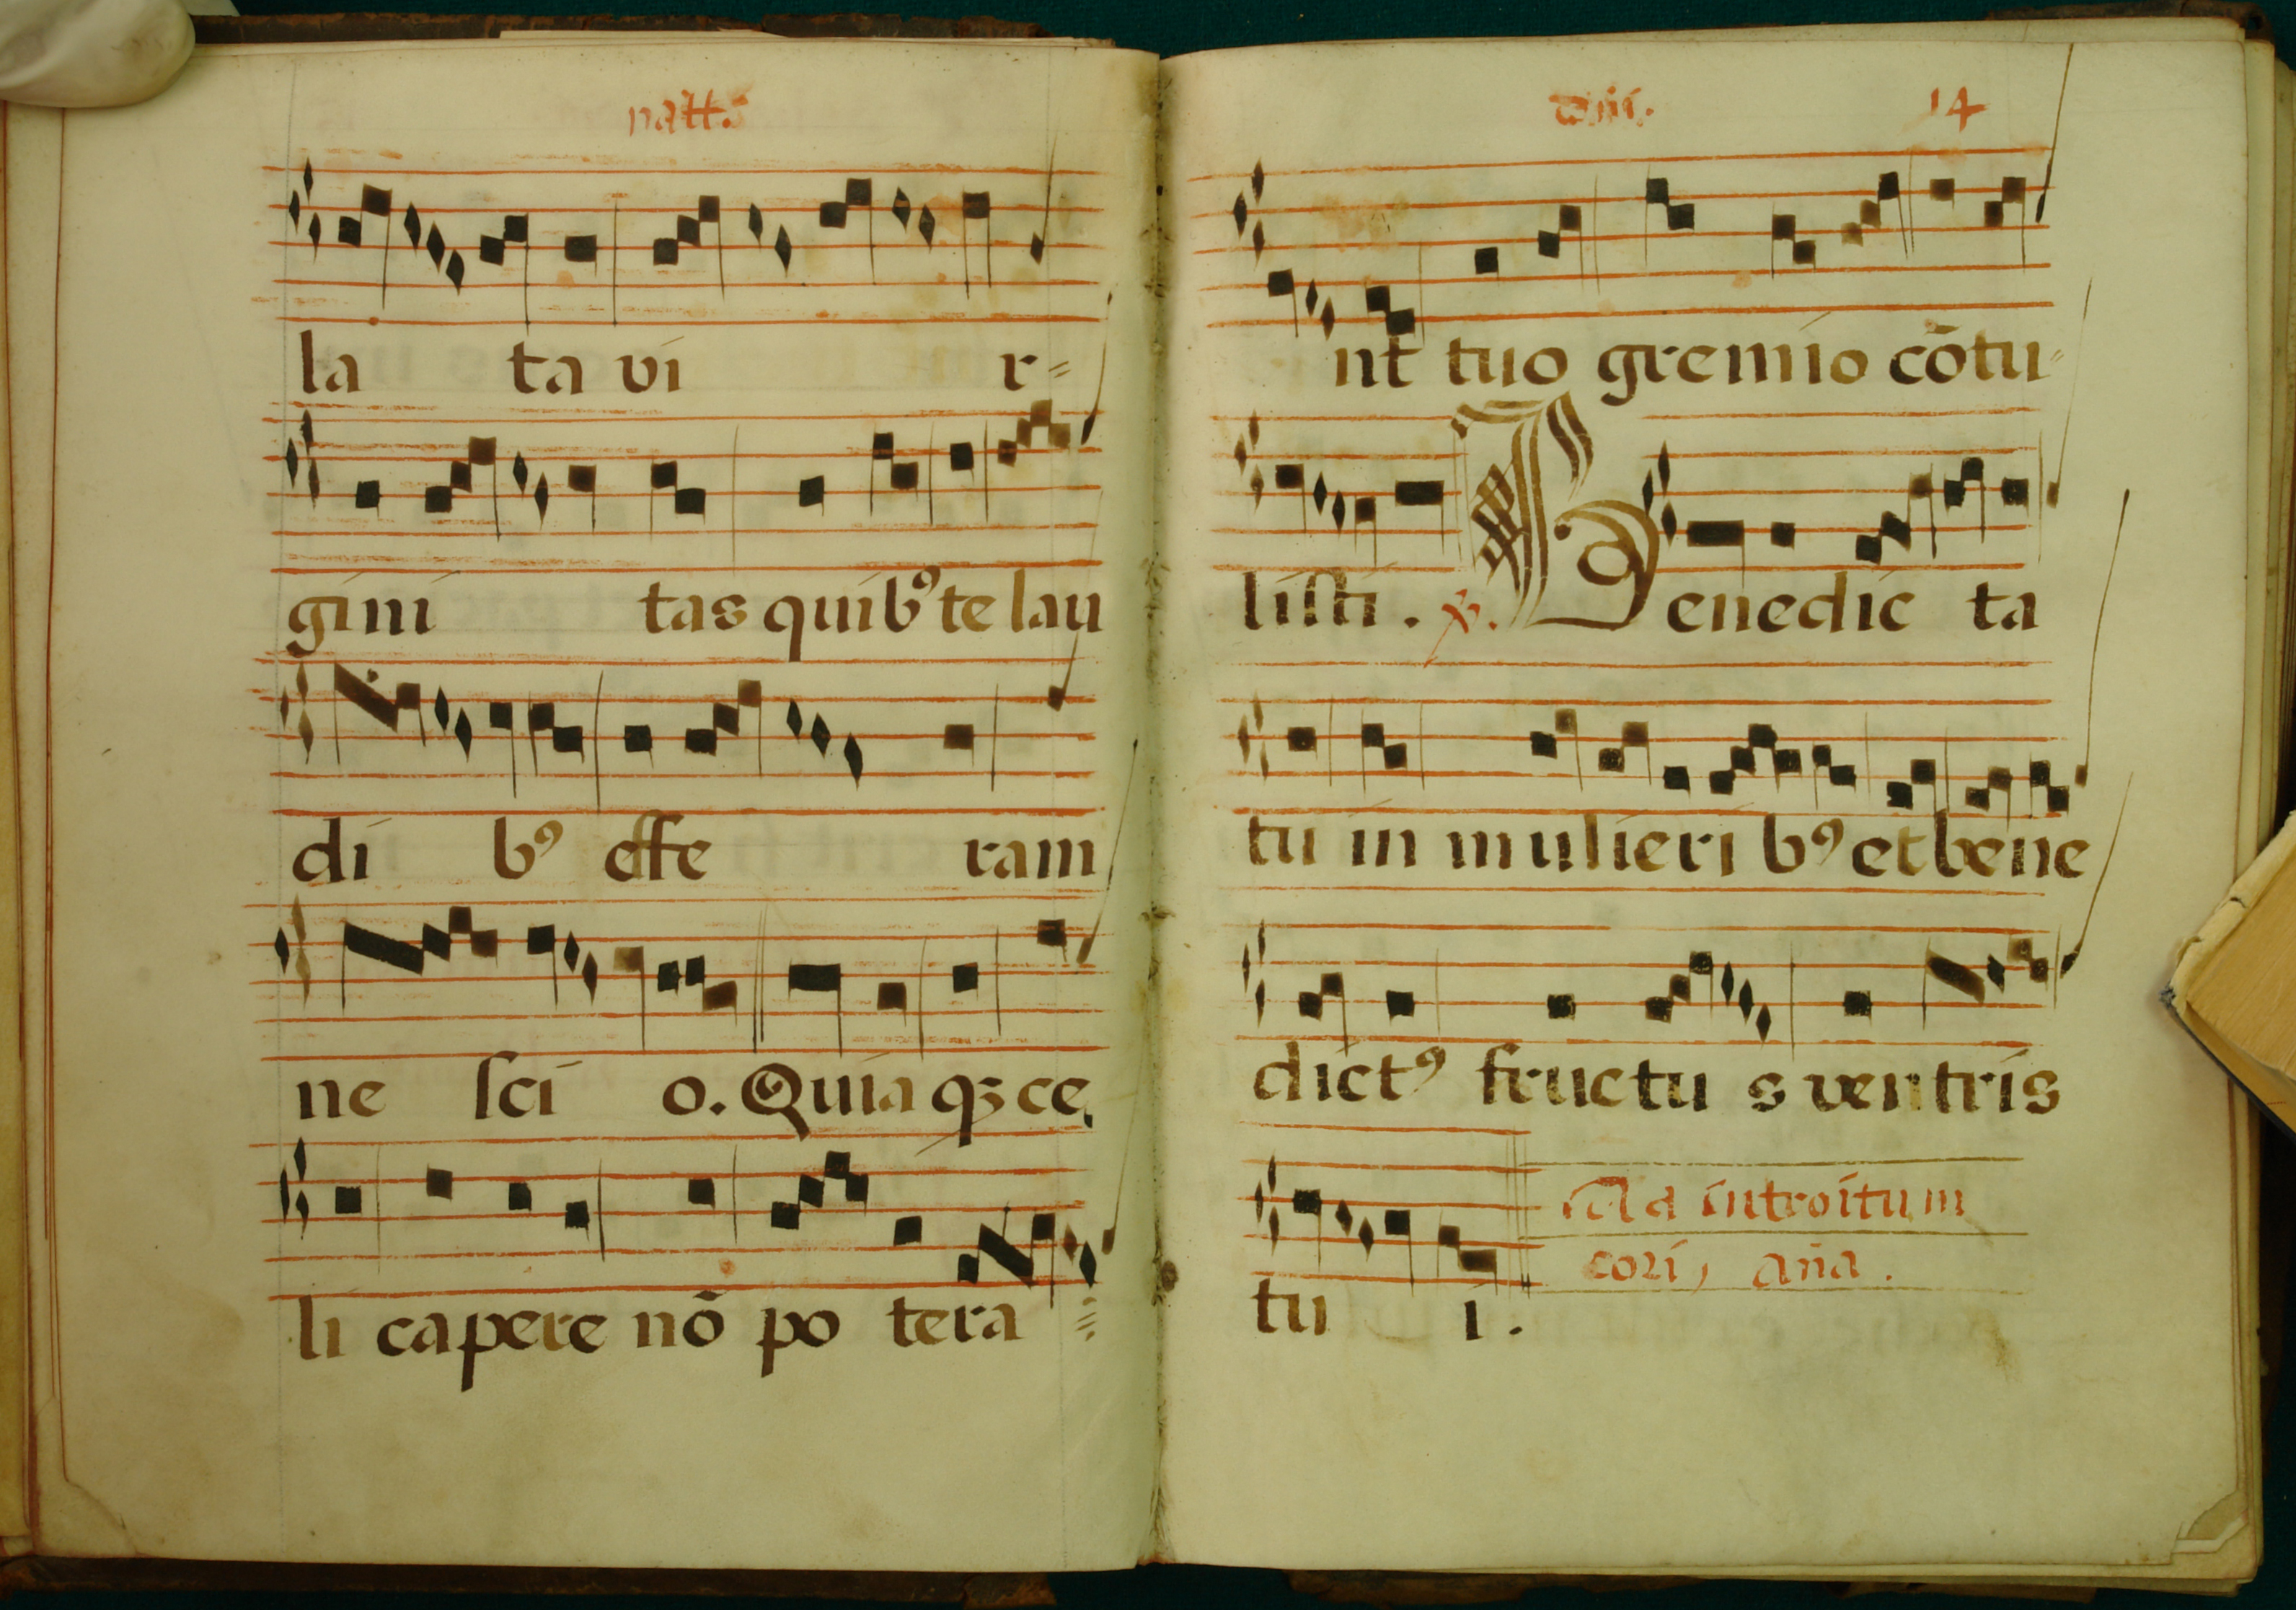 natt.s
la ta vi r=
gini tas quibꝰ te lau
di bꝰ effe ram
ne ſci o. Quia qꝫ ce
li capere nõ po tera
dñi. 14
nt tuo gremio cõtu-
liſti. ℣. Benedic ta
tu in mulieri bꝰ et bene
dictꝰ fructu s ventris
tu i.
Ad introitum
cori, aña.